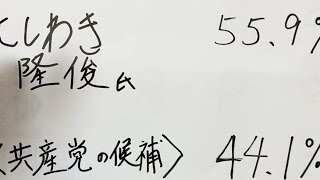 にしわき 55.9%
隆俊氏
〈共産党の候補〉 44.1%